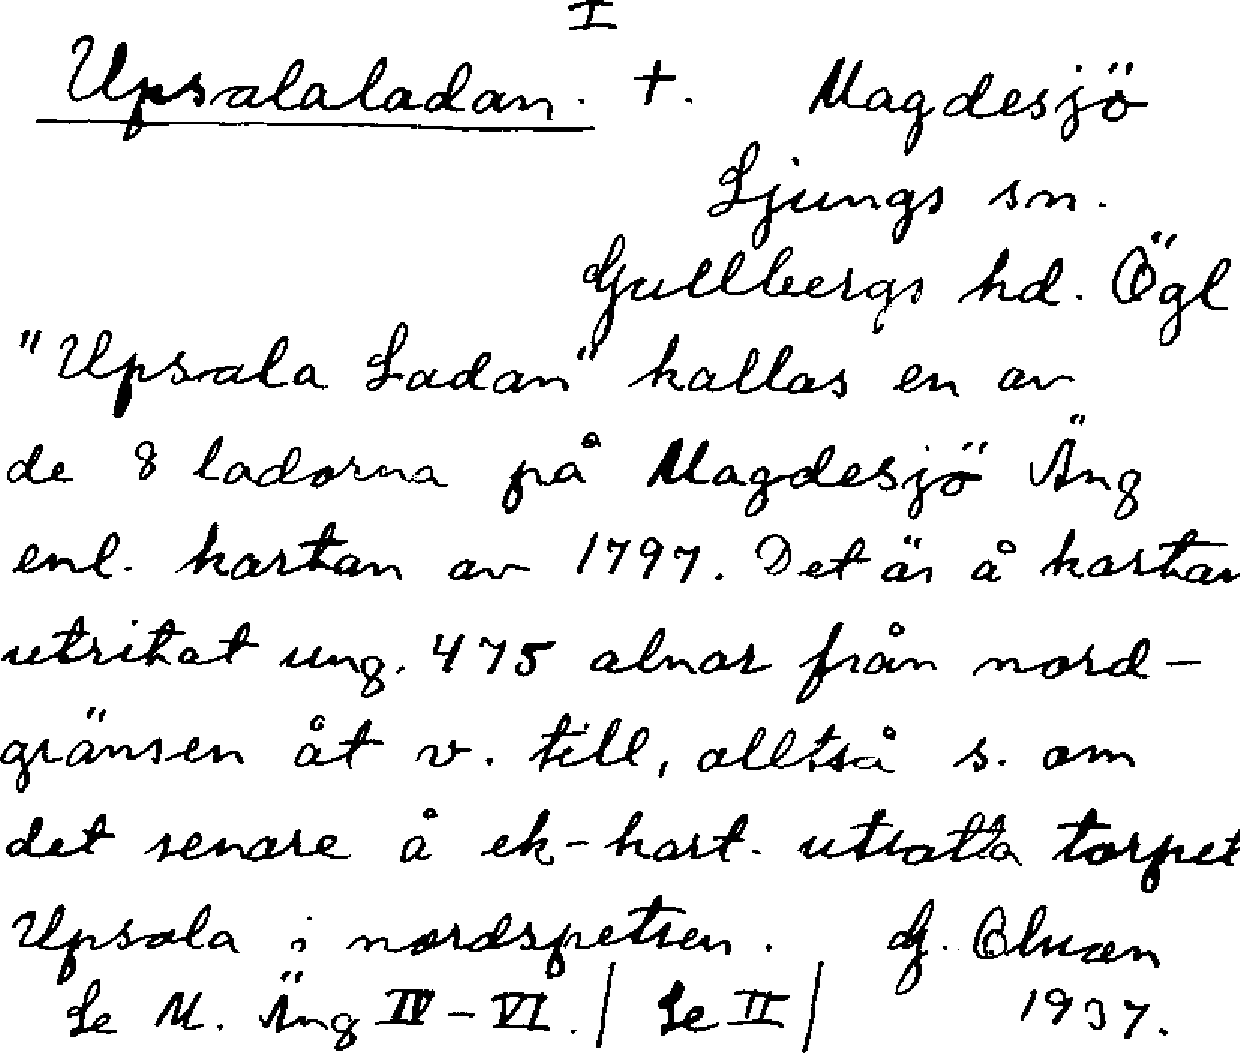 I
Upsalaladan. +. Magdesjö
Ljungs sn.
Gullbergs hd. Ögl
"Upsala Ladan" kallas en av
de 8 ladorna på Magdesjö Äng
enl. kartan av 1797. Det är å kartan
utritat ung. 475 alnar från nord-
gränsen åt v. till, alltså s. om
det senare å ek-kart. utsatta torpet
Upsala i nordspetsen. G.
Se M. Äng IV-VI. / Se II / 1937.